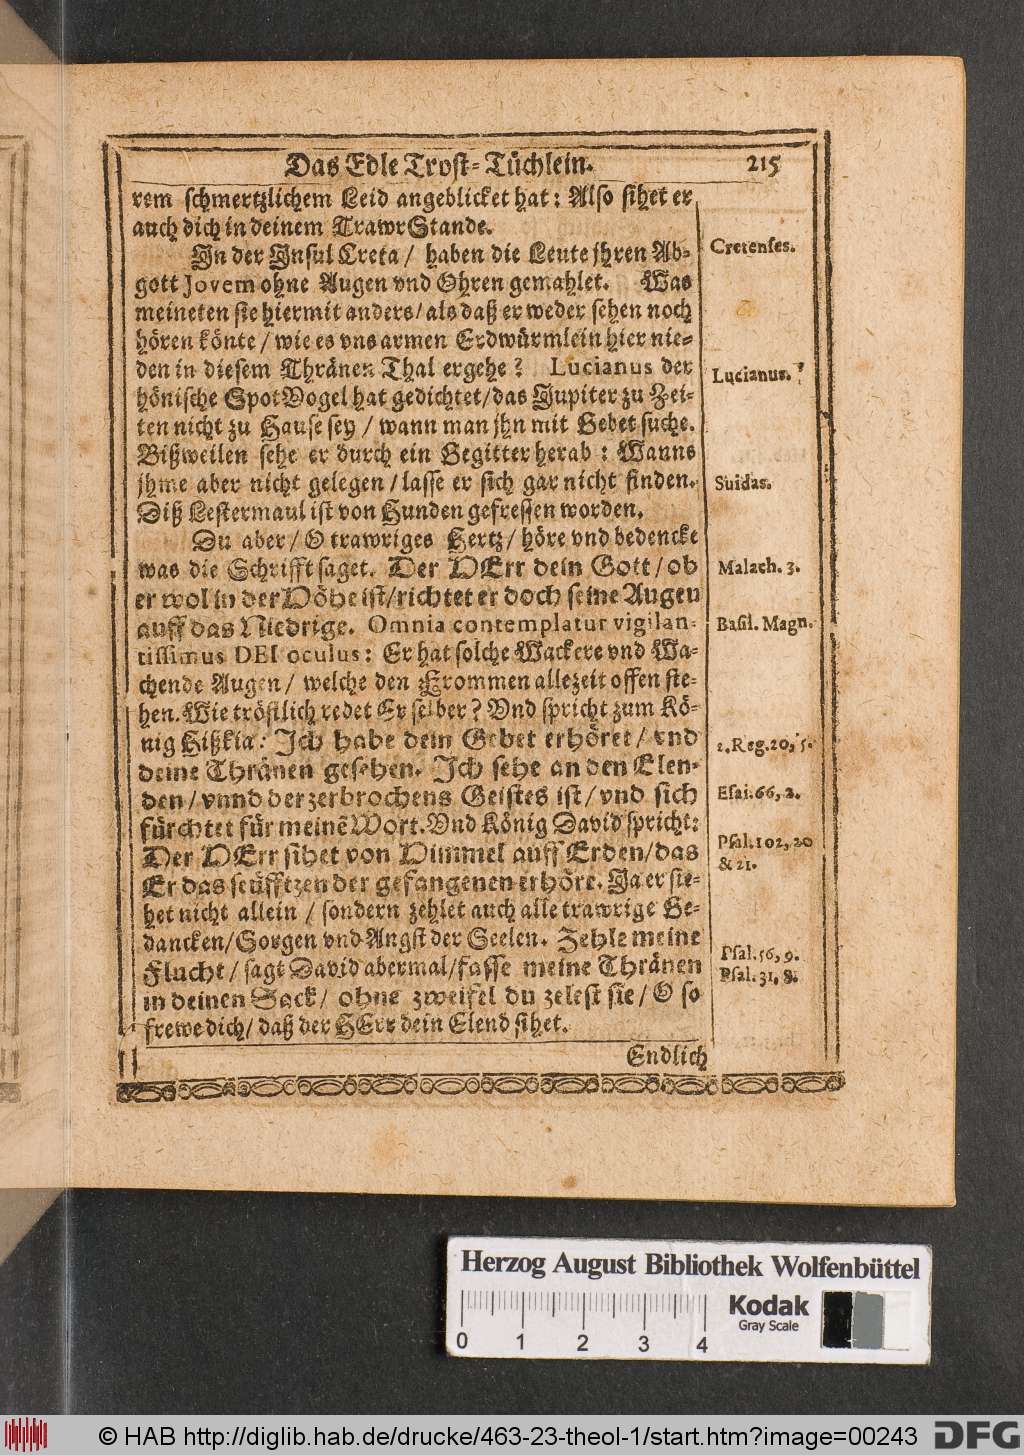 Das Edle Trost-Tüchlein. 215
rem schmertzlichem Leid angeblicket hat: Also sihet er
auch dich in deinem TrawrStande.
In der Insul Creta / haben die Leute jhren Ab-
Cretenses.
gott Jovem ohne Augen vnd Ohren gemahlet. Was
meineten sie hiermit anders / als daß er weder sehen noch
hören könte / wie es vns armen Erdwürmlein hier nie-
den in diesem Thränen Thal ergehe? Lucianus der
Lucianus.
hönische SpotVogel hat gedichtet / das Jupiter zu Zei-
ten nicht zu Hause sey / wann man jhn mit Gebet suche.
Bißweilen sehe er durch ein Gegitter herab: Wanns
jhme aber nicht gelegen / lasse er sich gar nicht finden.
Suidas.
Diß Lestermaul ist von Hunden gefressen worden.
Du aber / O trawriges Hertz / höre vnd bedencke
was die Schrifft saget. Der HErr dein Gott / ob
Malach. 3.
er wol in der Höhe ist / richtet er doch seine Augen
auff das Niedrige. Omnia contemplatur vigilan-
Basil. Magn.
tissimus DEI oculus: Er hat solche Wackere vnd Wa-
chende Augen / welche den Frommen allezeit offen ste-
hen. Wie tröstlich redet Er selber? Vnd spricht zum Kö-
nig Hißkia: Ich habe dein Gebet erhöret / vnd
2. Reg. 20, 5.
deine Thränen gesehen. Ich sehe an den Elen-
den / vnnd der zerbrochens Geistes ist / vnd sich
Esai. 66, 2.
fürchtet für meinē Wort. Vnd König David spricht:
Der HErr sihet von Himmel auff Erden / das
Psal. 102, 20
& 21.
Er das seüfftzen der gefangenen erhöre. Ja er sie-
het nicht allein / sondern zehlet auch alle trawrige Ge-
dancken / Sorgen vnd Angst der Seelen. Zehle meine
Psal. 56, 9.
Flucht / sagt David abermal / fasse meine Thränen
Psal. 31, 8.
in deinen Sack / ohne zweifel du zelest sie / O so
frewe dich / daß der HErr dein Elend sihet.
Endlich
Herzog August Bibliothek Wolfenbüttel
Kodak
Gray Scale
0 1 2 3 4
© HAB http://diglib.hab.de/drucke/463-23-theol-1/start.htm?image=00243
DFG